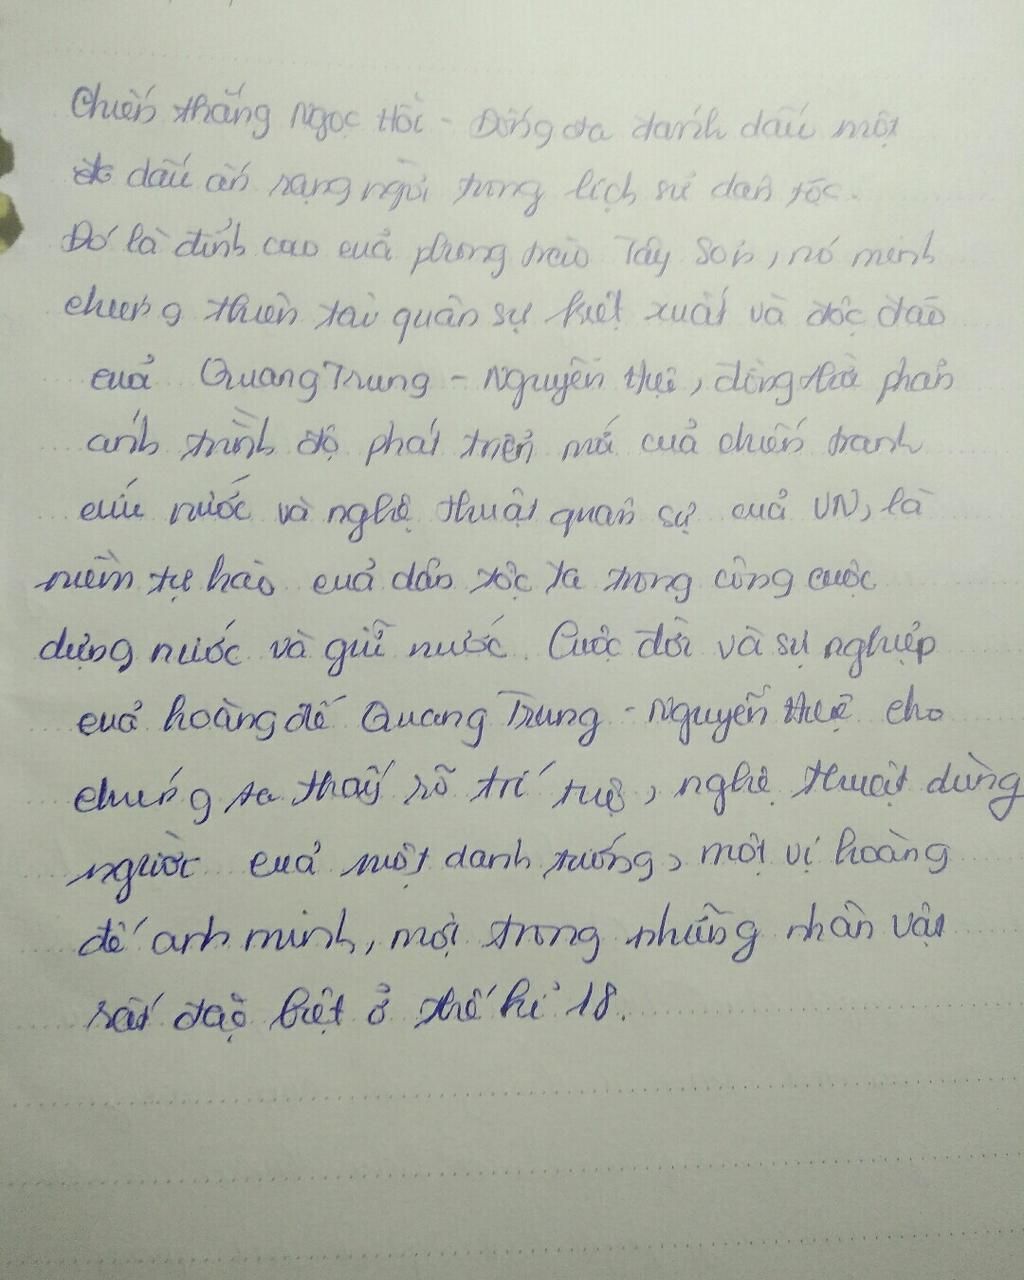 Chiến thắng Ngọc Hồi - Đống đa đánh dấu một
dấu ấn rạng ngời trong lịch sử dân tộc.
Đó là đỉnh cao của phong trào Tây Sơn, nó minh
chứng thiên tài quân sự kiệt xuất và độc đáo
của Quang Trung - Nguyễn Huệ, đồng thời phản
ánh trình độ phát triển mới của chiến tranh
cứu nước và nghệ thuật quân sự của VN, là
niềm tự hào của dân tộc ta trong công cuộc
dựng nước và giữ nước. Cuộc đời và sự nghiệp
của hoàng đế Quang Trung - Nguyễn Huệ cho
chúng ta thấy rõ trí tuệ, nghệ thuật dùng
người của một danh tướng, một vị hoàng
đế anh minh, một trong những nhân vật
rất đặc biệt ở thế kỉ 18.